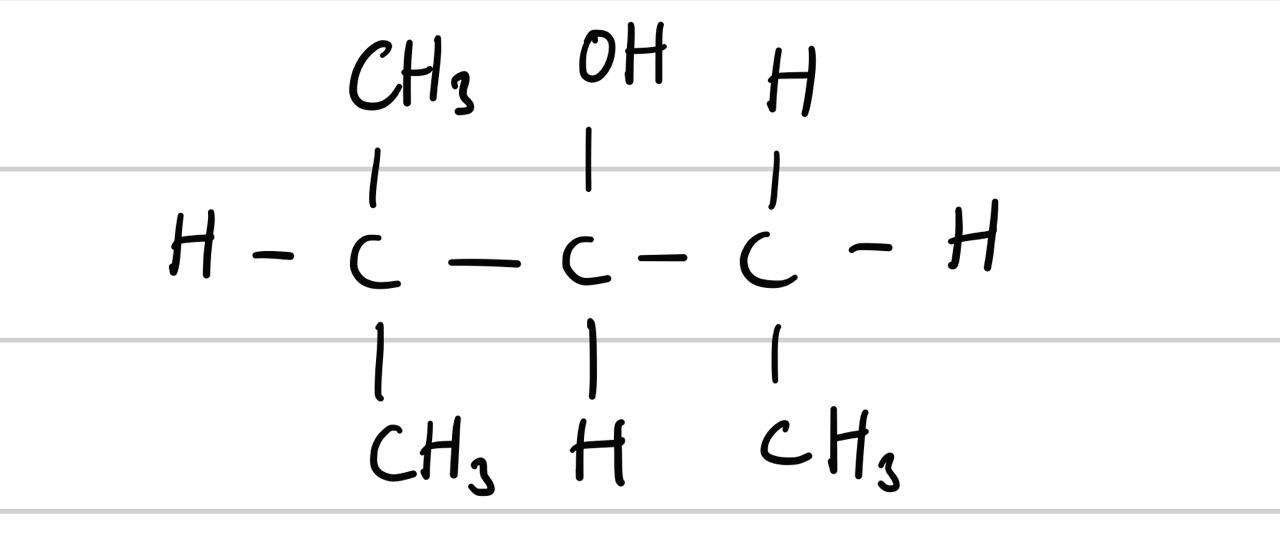 CH₃ OH H
|  |  |
H – C — C – C – H
|  |  |
CH₃ H CH₃